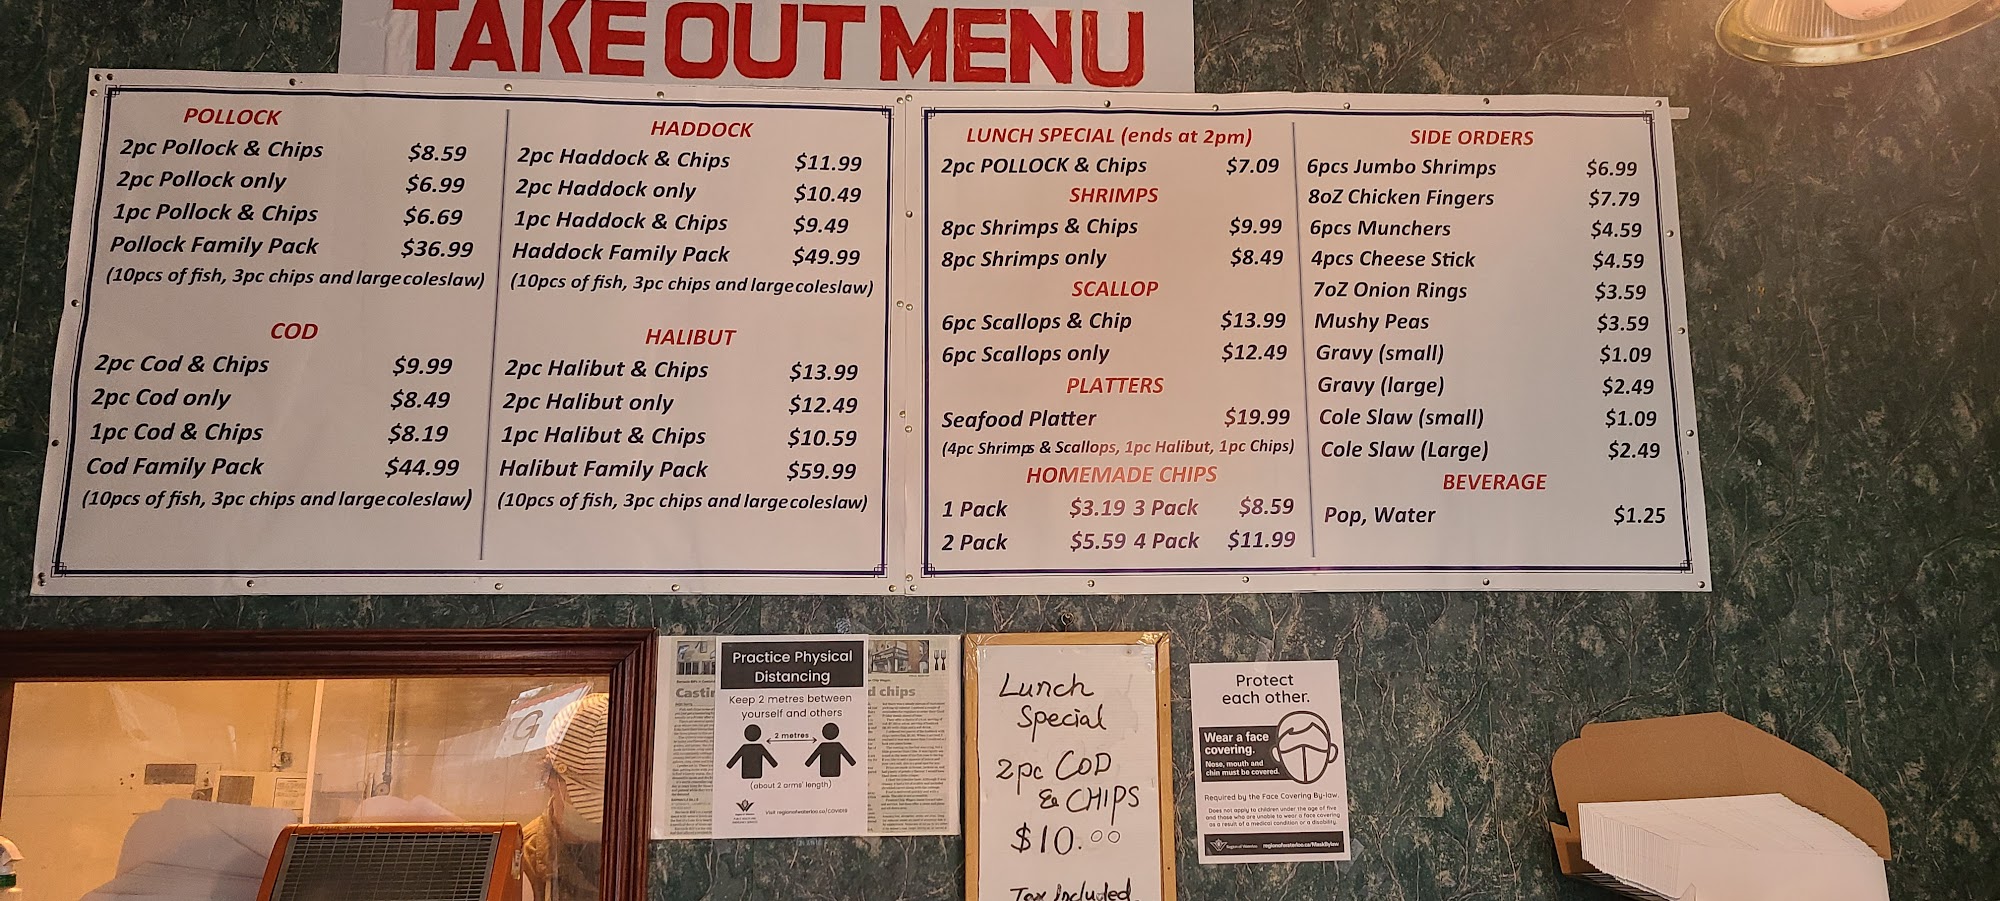 TAKE OUT MENU
POLLOCK
2pc Pollock & Chips $8.59
2pc Pollock only $6.99
1pc Pollock & Chips $6.69
Pollock Family Pack $36.99
(10pcs of fish, 3pc chips and large coleslaw)
COD
2pc Cod & Chips $9.99
2pc Cod only $8.49
1pc Cod & Chips $8.19
Cod Family Pack $44.99
(10pcs of fish, 3pc chips and large coleslaw)
HADDOCK
2pc Haddock & Chips $11.99
2pc Haddock only $10.49
1pc Haddock & Chips $9.49
Haddock Family Pack $49.99
(10pcs of fish, 3pc chips and large coleslaw)
HALIBUT
2pc Halibut & Chips $13.99
2pc Halibut only $12.49
1pc Halibut & Chips $10.59
Halibut Family Pack $59.99
(10pcs of fish, 3pc chips and large coleslaw)
LUNCH SPECIAL (ends at 2pm)
2pc POLLOCK & Chips $7.09
SHRIMPS
8pc Shrimps & Chips $9.99
8pc Shrimps only $8.49
SCALLOP
6pc Scallops & Chip $13.99
6pc Scallops only $12.49
PLATTERS
Seafood Platter $19.99
(4pc Shrimps & Scallops, 1pc Halibut, 1pc Chips)
HOMEMADE CHIPS
1 Pack $3.19 3 Pack $8.59
2 Pack $5.59 4 Pack $11.99
SIDE ORDERS
6pcs Jumbo Shrimps $6.99
8oZ Chicken Fingers $7.79
6pcs Munchers $4.59
4pcs Cheese Stick $4.59
7oZ Onion Rings $3.59
Mushy Peas $3.59
Gravy (small) $1.09
Gravy (large) $2.49
Cole Slaw (small) $1.09
Cole Slaw (Large) $2.49
BEVERAGE
Pop, Water $1.25
Practice Physical
Distancing
Keep 2 metres between
yourself and others
2 metres
(about 2 arms' length)
Visit regionofwaterloo.ca/COVID19
d chips
Lunch
Special
2pc COD
& CHIPS
$10.00
Tax Included
Protect
each other.
Wear a face
covering.
Nose, mouth and
chin must be covered.
Required by the Face Covering By-law.
Does not apply to children under the age of five
and those who are unable to wear a face covering
as a result of a medical condition or a disability.
Region of Waterloo regionofwaterloo.ca/MaskBylaw
G